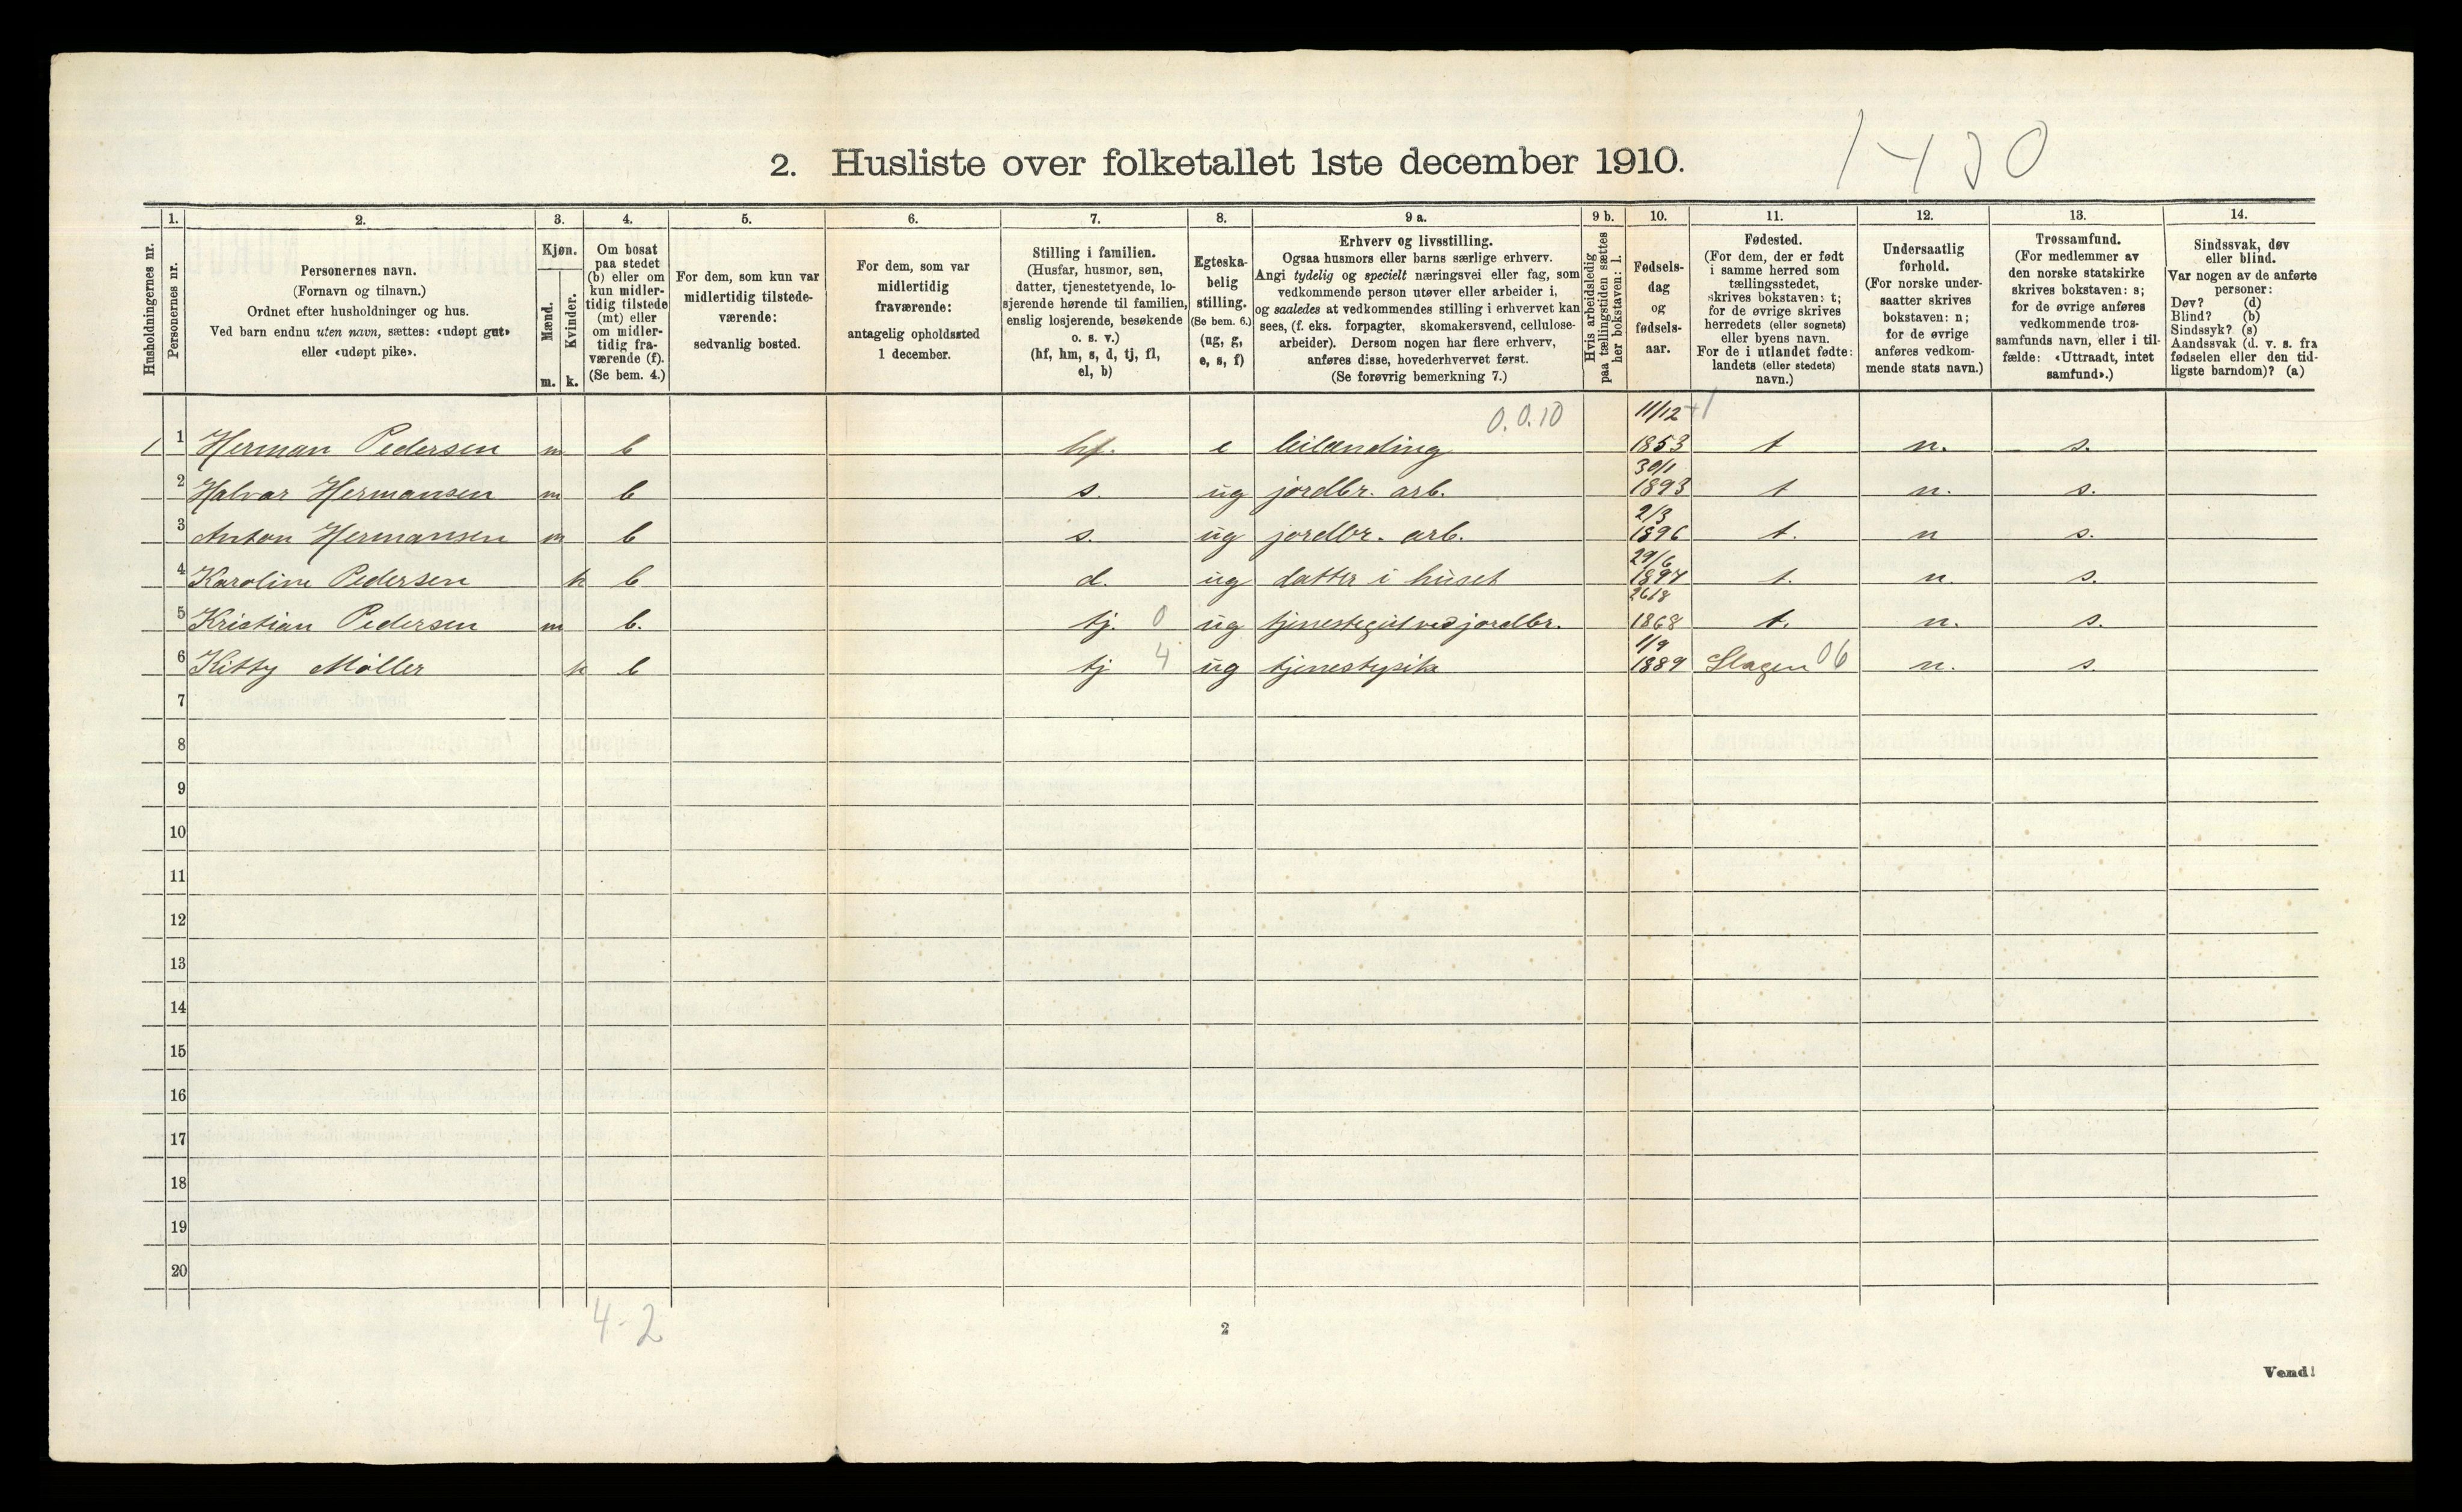 1430
2. Husliste over folketallet 1ste december 1910.
Husholdningernes nr.
1.
Personernes nr.
2.
Personernes navn.
(Fornavn og tilnavn.)
Ordnet efter husholdninger og hus.
Ved barn endnu uten navn, sættes: «udøpt gut»
eller «udøpt pike».
3.
Kjøn.
Mænd.
Kvinder.
m. k.
4.
Om bosat
paa stedet
(b) eller om
kun midler-
tidig tilstede
(mt) eller
om midler-
tidig fra-
værende (f).
(Se bem. 4.)
5.
For dem, som kun var
midlertidig tilstede-
værende:
sedvanlig bosted.
6.
For dem, som var
midlertidig
fraværende:
antagelig opholdssted
1 december.
7.
Stilling i familien.
(Husfar, husmor, søn,
datter, tjenestetyende, lo-
sjerende hørende til familien,
enslig losjerende, besøkende
o. s. v.)
(hf, hm, s, d, tj, fl,
el, b)
8.
Egteska-
belig
stilling.
(Se bem. 6.)
(ug, g,
e, s, f)
9 a.
Erhverv og livsstilling.
Ogsaa husmors eller barns særlige erhverv.
Angi tydelig og specielt næringsvei eller fag, som
vedkommende person utøver eller arbeider i,
og saaledes at vedkommendes stilling i erhvervet kan
sees, (f. eks. forpagter, skomakersvend, cellulose-
arbeider). Dersom nogen har flere erhverv,
anføres disse, hovederhvervet først.
(Se forøvrig bemerkning 7.)
9 b.
Hvis arbeidsledig
paa tællingstiden sættes
her bokstaven: l.
10.
Fødsels-
dag
og
fødsels-
aar.
11.
Fødested.
(For dem, der er født
i samme herred som
tællingsstedet,
skrives bokstaven: t;
for de øvrige skrives
herredets (eller sognets)
eller byens navn.
For de i utlandet fødte:
landets (eller stedets)
navn.)
12.
Undersaatlig
forhold.
(For norske under-
saatter skrives
bokstaven: n;
for de øvrige
anføres vedkom-
mende stats navn.)
13.
Trossamfund.
(For medlemmer av
den norske statskirke
skrives bokstaven: s;
for de øvrige anføres
vedkommende tros-
samfunds navn, eller i til-
fælde: «Uttraadt, intet
samfund».)
14.
Sindssvak, døv
eller blind.
Var nogen av de anførte
personer:
Døv? (d)
Blind? (b)
Sindssyk? (s)
Aandssvak (d. v. s. fra
fødselen eller den tid-
ligste barndom)? (a)
0.0.10 11/12
1 1 Herman Pedersen m b hf. e leilænding 1853 t n. s.
30/1
2 Halvar Hermansen m b s. ug jordbr. arb. 1893 t n. s.
2/3
3 Anton Hermansen m b s. ug jordbr. arb. 1896 t. n s.
29/6
4 Karoline Pedersen k b d. ug datter i huset 1897 t. n. s.
26/8
5 Kristian Pedersen m b. tj. 0 ug tjenestegut ved jordbr. 1868 t. n. s.
1/9
6 Kitty Møller k b tj 4 ug tjenestepike 1889 Slagen 06 n. s
7
8
9
10
11
12
13
14
15
16
17
18
19
20
4-2
2
Vend!